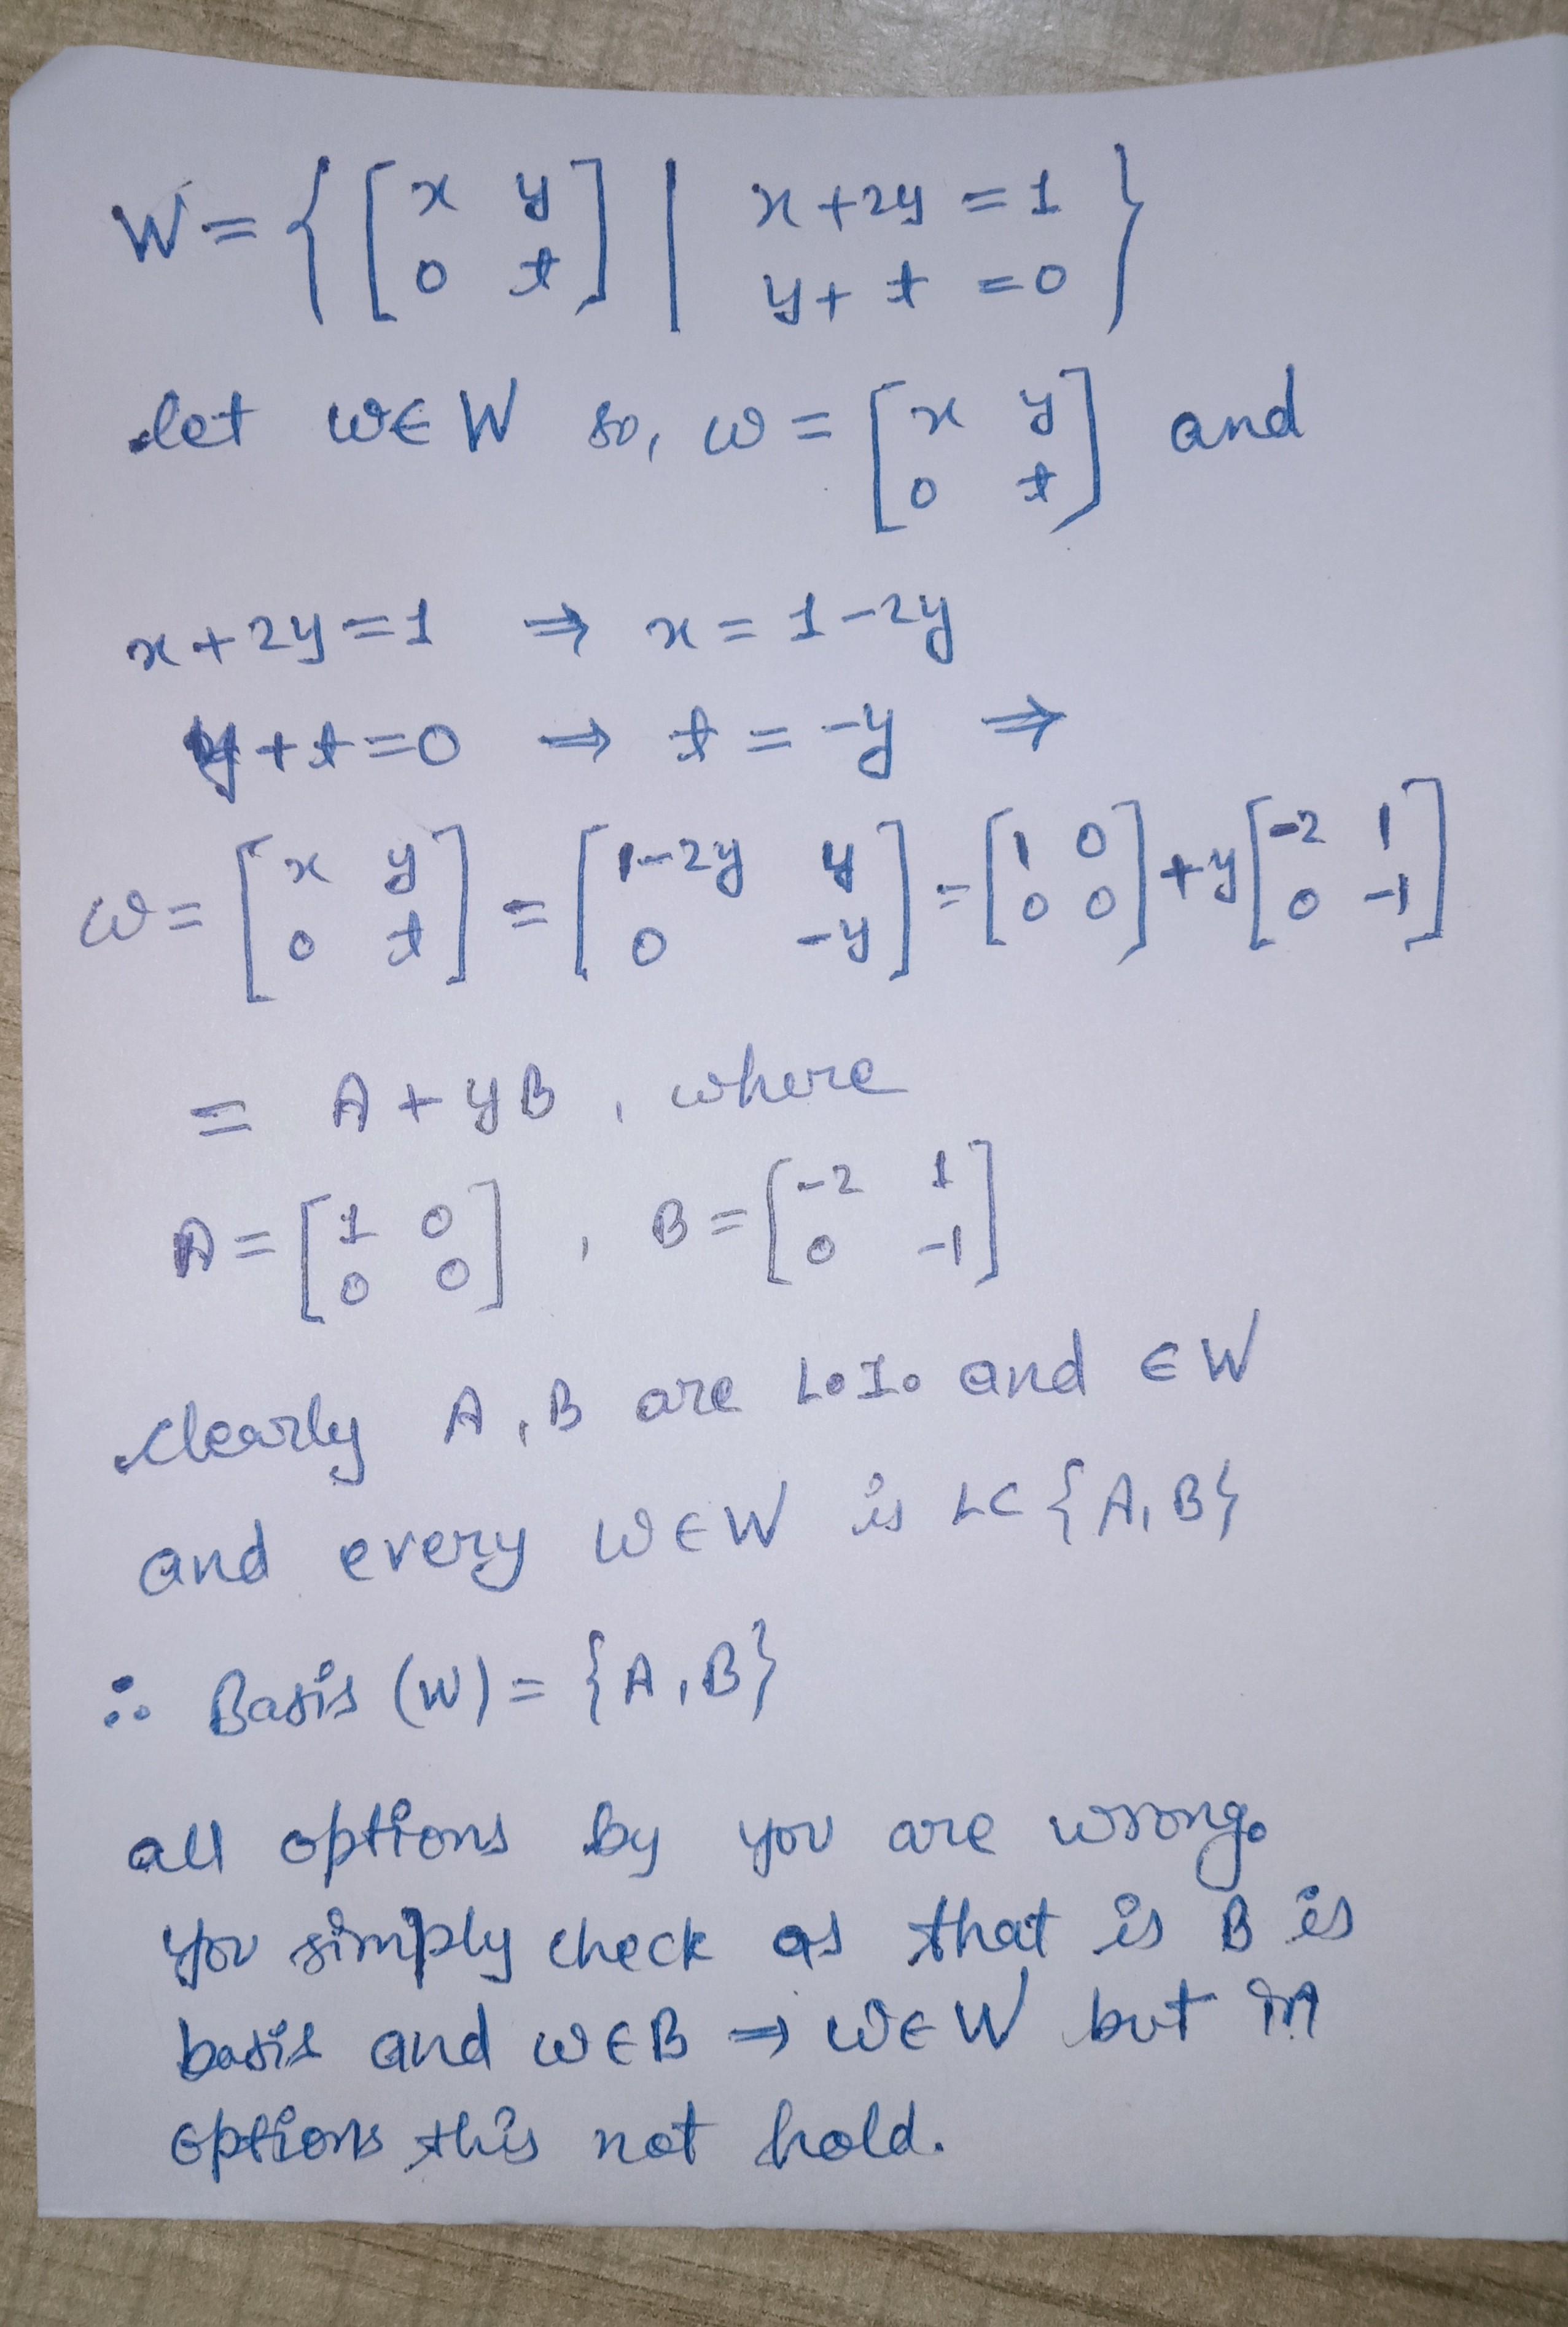 W = { [ x y ; 0 t ] | x + 2y = 1 , y + t = 0 }
let w ∈ W so, w = [ x y ; 0 t ] and
x + 2y = 1 ⇒ x = 1 - 2y
y + t = 0 ⇒ t = -y ⇒
w = [ x y ; 0 t ] = [ 1-2y y ; 0 -y ] = [ 1 0 ; 0 0 ] + y [ -2 1 ; 0 -1 ]
= A + yB , where
A = [ 1 0 ; 0 0 ] , B = [ -2 1 ; 0 -1 ]
clearly A, B are L.I. and ∈ W
and every w ∈ W is LC {A, B}
∴ Basis (W) = {A, B}
all options by you are wrong.
you simply check as that is B is
basis and w ∈ B ⇒ w ∈ W but in
options this not hold.